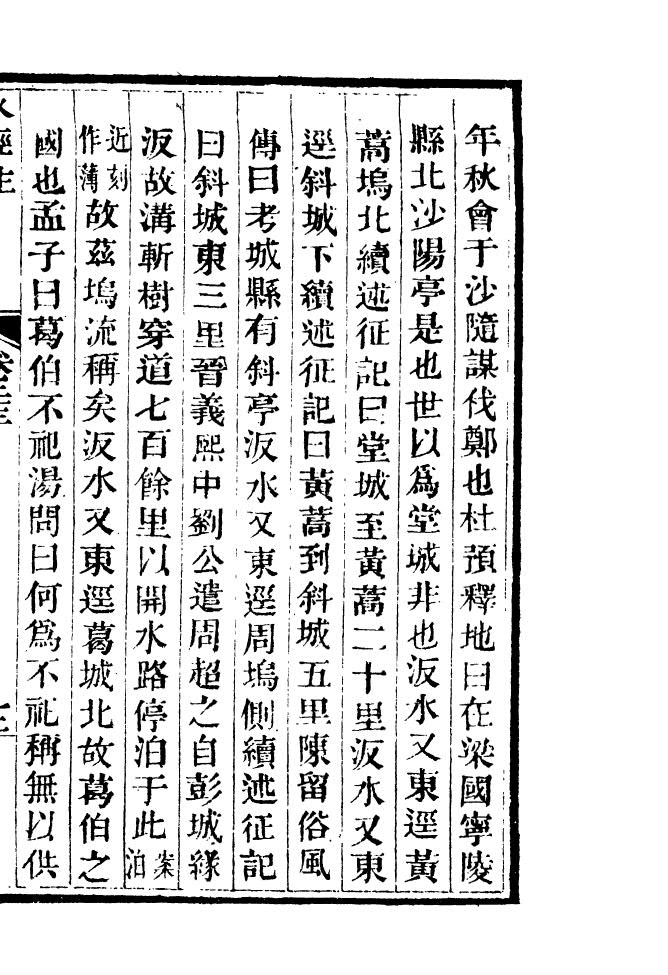 年秋會于沙隨謀伐鄭也杜預釋地曰在梁國寧陵
縣北沙陽亭是也世以爲堂城非也汳水又東逕黃
蒿塢北續述征記曰堂城至黃蒿二十里汳水又東
逕斜城下續述征記曰黃蒿到斜城五里陳留俗風
傳曰考城縣有斜亭汳水又東逕周塢側續述征記
曰斜城東三里晉義熙中劉公遣周超之自彭城緣
汳故溝斬樹穿道七百餘里以開水路停泊于此案泊
近刻作薄故茲塢流稱矣汳水又東逕葛城北故葛伯之
國也孟子曰葛伯不祀湯問曰何爲不祀稱無以供
水經注
卷二十三